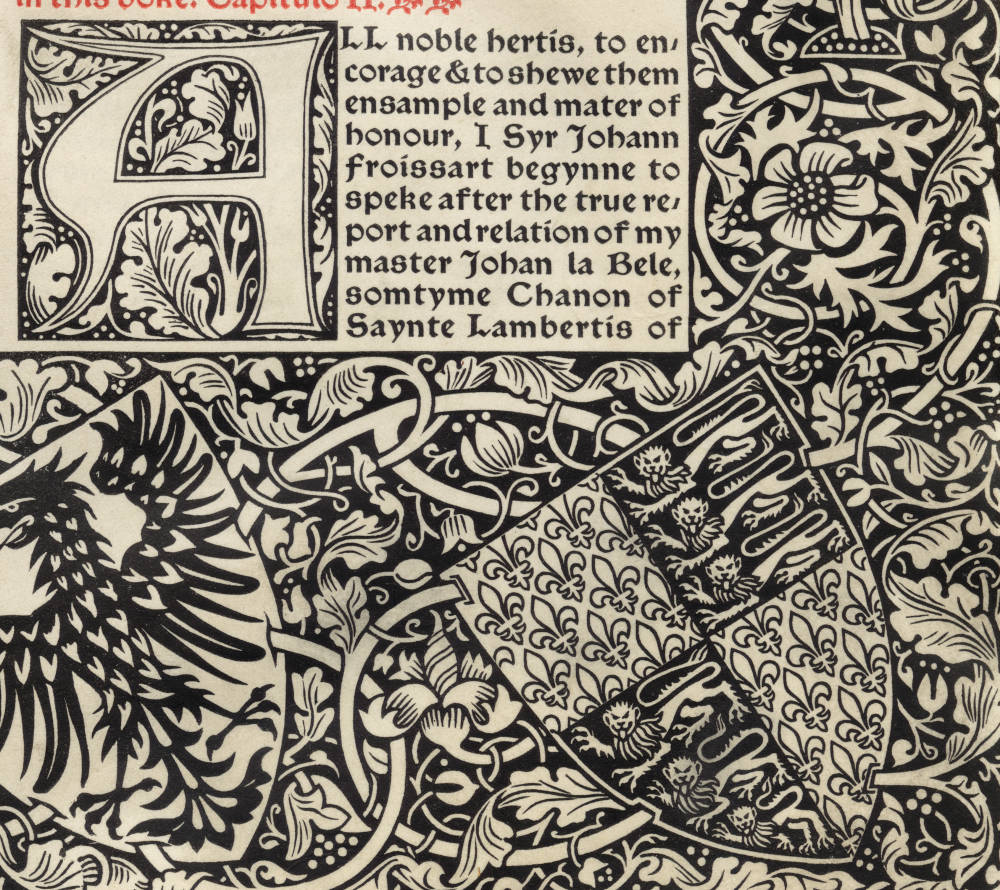 in this boke. Capitulo II.
ALL noble hertis, to en/
corage & to shewe them
ensample and mater of
honour, I Syr Johann
Froissart begynne to
speke after the true re/
port and relation of my
master Johan la Bele,
somtyme Chanon of
Saynte Lambertis of